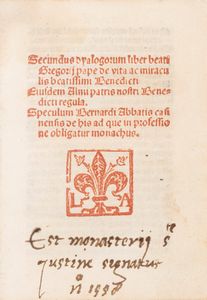 Secundus dyalogorum liber beati
Gregorij pape de vita ac miracu
lis beatissimi Benedicti
Eiusdem Almi patris nostri Bene
dicti regula.
Speculum Bernardi Abbatis casi
nensis de his ad que in professio
ne obligatur monachus.
L A
Est monasterij S
Justine signatus